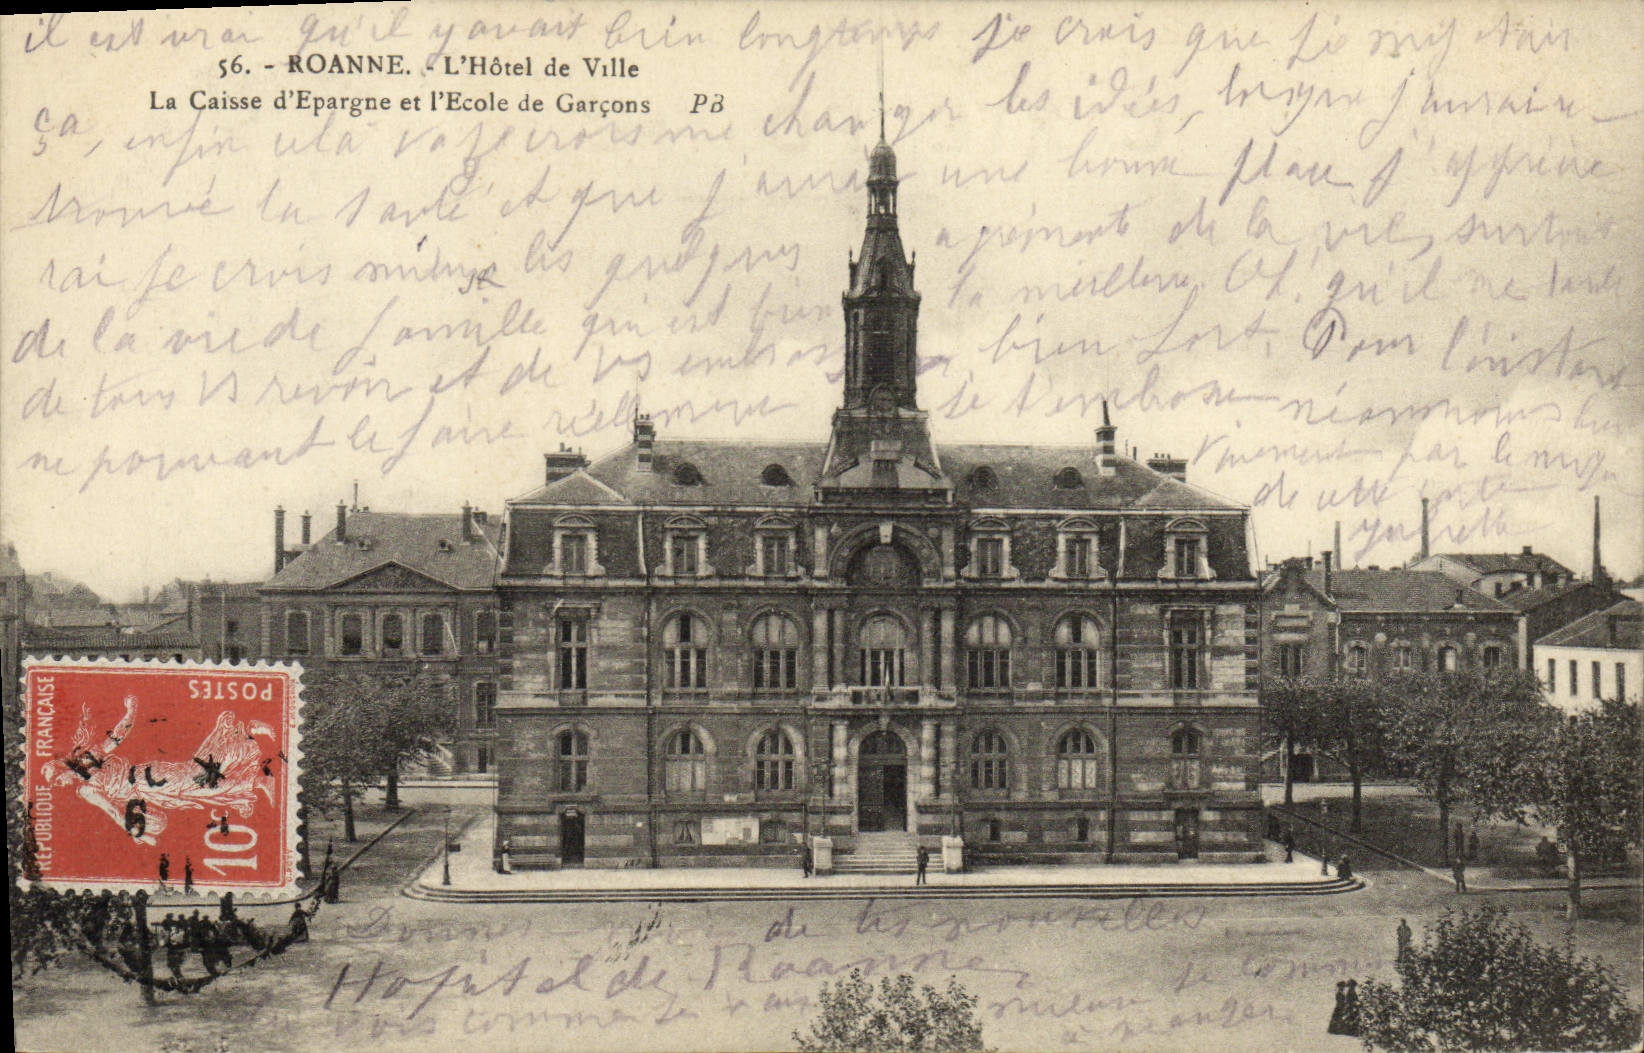 il est vrai qu'il y avait bien longtemps je crois que je
56. - ROANNE. - L'Hôtel de Ville
La Caisse d'Epargne et l'Ecole de Garçons PB
ça, enfin cela va je crois me changer les idées, lorsque j'aurai re-
trouvé la santé et que j'aurai une bonne place j'apprécie
rai je crois même les quelques agréments de la vie, surtout
de la vie de famille qui est bien la meilleure. Oh! qu'il me tarde
de tous vs revoir et de vs embrasser bien fort. Pour l'instant
ne pouvant le faire réellement je t'embrasse néanmoins bien
vivement par le moyen
de cette carte
Donnes de tes nouvelles
Hôpital de Roanne
Tu vois comment mieux je commence
à manger
POSTES
RÉPUBLIQUE FRANÇAISE
10c